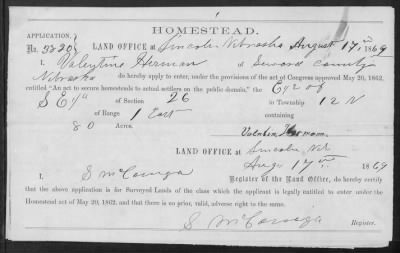 HOMESTEAD.
APPLICATION
No. 3320
LAND OFFICE at Lincoln Nebraska August 17th 1869
I, Valentine Herman of Seward County
Nebraska do hereby apply to enter, under the provisions of the act of Congress approved May 20, 1862,
entitled "An act to secure homesteads to actual settlers on the public domain," the E 1/2 of
S E 1/4 of Section 26 in Township 12 N
of Range 1 East containing
80 Acres.
Valentin Hermann.
LAND OFFICE at Lincoln Neb
Aug 17th 1869
I, S McConiga Register of the Land Office, do hereby certify
that the above application is for Surveyed Lands of the class which the applicant is legally entitled to enter under the
Homestead act of May 20, 1862, and that there is no prior, valid, adverse right to the same.
S. McConiga
Register.